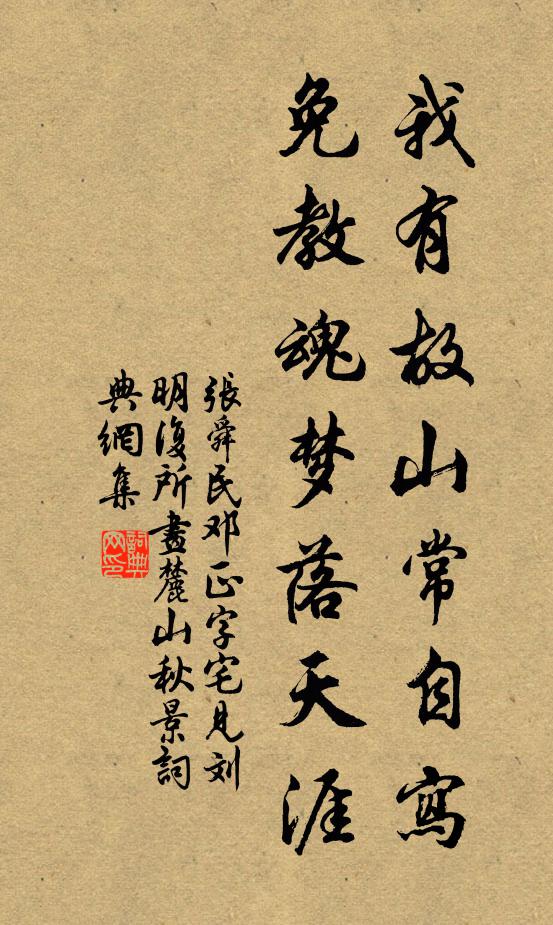 我有故山常自寫
免教魂梦落天涯
張舜民邓正字宅見刘
明復所畫麓山秋景詞
典網集
詞典網印